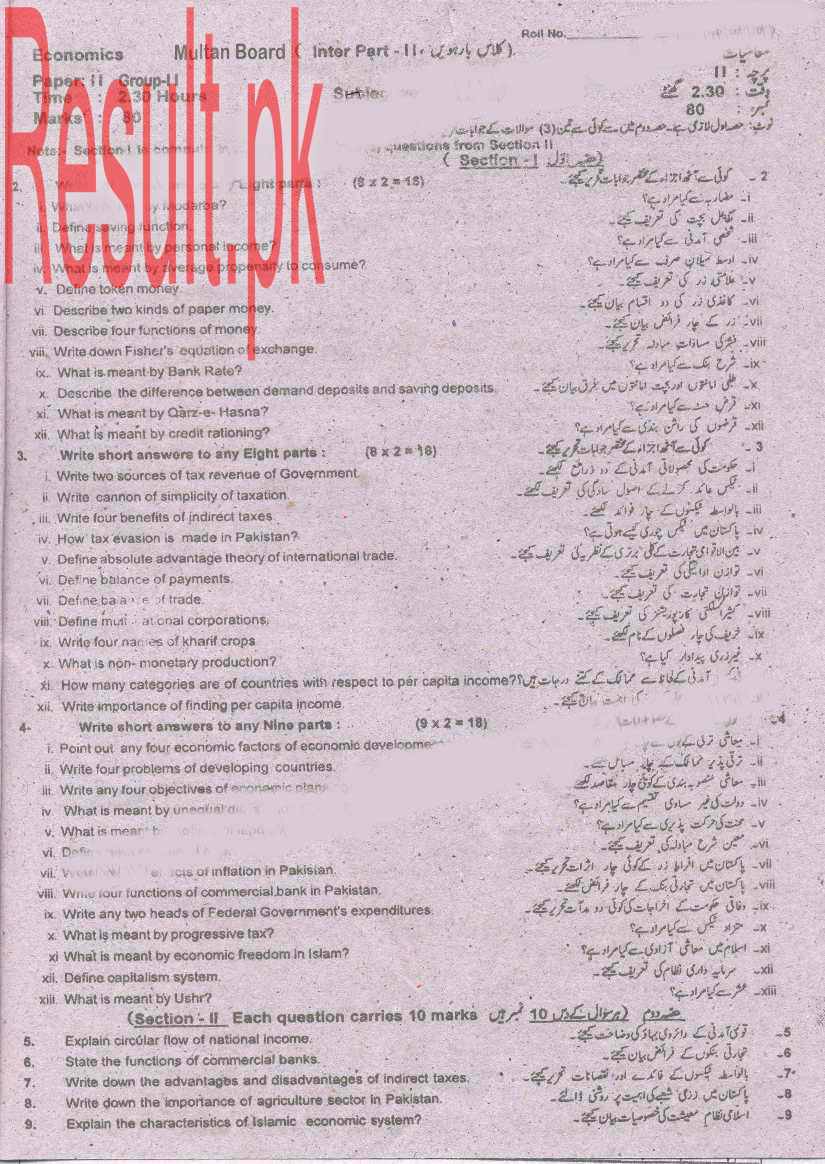 Roll No.
Economics Multan Board ( Inter Part - II، کلاس بارہویں ). معاشیات
Paper: II Group-II پرچہ : II
Time : 2.30 Hours وقت : 2.30 گھنٹے
Marks : 80 نمبر : 80
نوٹ: حصہ اول لازمی ہے۔ حصہ دوم میں سے کوئی سے تین (3) سوالات کے جوابات
Note:- Section-I is questions from Section II
( Section - I حصہ اوّل )
2. Eight parts : (8 x 2 = 16) 2 ۔ کوئی سے آٹھ اجزاء کے مختصر جوابات تحریر کیجئے۔
i. What by Modarba? i۔ مضاربہ سے کیا مراد ہے؟
ii. Define saving function. ii۔ تفاعل بچت کی تعریف کیجئے۔
iii. What is meant by personal income? iii۔ شخصی آمدنی سے کیا مراد ہے؟
iv. What is meant by average propensity to consume? iv۔ اوسط میلان صرف سے کیا مراد ہے؟
v. Define token money. v۔ علامتی زر کی تعریف کیجئے۔
vi. Describe two kinds of paper money. vi۔ کاغذی زر کی دو اقسام بیان کیجئے۔
vii. Describe four functions of money. vii۔ زر کے چار فرائض بیان کیجئے۔
viii. Write down Fisher's equation of exchange. viii۔ فشر کی مساوات مبادلہ تحریر کیجئے۔
ix. What is meant by Bank Rate? ix۔ شرح بنک سے کیا مراد ہے؟
x. Describe the difference between demand deposits and saving deposits. x۔ طلبی امانتوں اور بچت امانتوں میں فرق بیان کیجئے۔
xi. What is meant by Qarz-e- Hasna? xi۔ قرض حسنہ سے کیا مراد ہے؟
xii. What is meant by credit rationing? xii۔ قرضوں کی راشن بندی سے کیا مراد ہے؟
3. Write short answers to any Eight parts : (8 x 2 = 16) 3 ۔ کوئی سے آٹھ اجزاء کے مختصر جوابات تحریر کیجئے۔
i. Write two sources of tax revenue of Government. i۔ حکومت کی محصولاتی آمدنی کے دو ذرائع لکھئے۔
ii. Write cannon of simplicity of taxation. ii۔ ٹیکس عائد کرنے کے اصول سادگی کی تعریف لکھئے۔
iii. Write four benefits of indirect taxes iii۔ بالواسطہ ٹیکسوں کے چار فوائد لکھئے۔
iv. How tax evasion is made in Pakistan? iv۔ پاکستان میں ٹیکس چوری کیسے ہوتی ہے؟
v. Define absolute advantage theory of international trade. v۔ بین الاقوامی تجارت کے کلی برتری کے نظریہ کی تعریف کیجئے۔
vi. Define balance of payments. vi۔ توازن ادائیگی کی تعریف کیجئے۔
vii. Define balance of trade. vii۔ توازن تجارت کی تعریف کیجئے۔
viii. Define multi ational corporations. viii۔ کثیر الملکی کارپوریشنز کی تعریف کیجئے۔
ix. Write four names of kharif crops ix۔ خریف کی چار فصلوں کے نام لکھئے۔
x. What is non- monetary production? x۔ غیر زری پیداوار کیا ہے؟
xi. How many categories are of countries with respect to per capita income? آمدنی کے لحاظ سے ممالک کے کتنے درجات ہیں؟
xii. Write importance of finding per capita income. کی اہمیت بیان کیجئے۔
4- Write short answers to any Nine parts : (9 x 2 = 18) 4۔
i. Point out any four economic factors of economic developme i۔ معاشی ترقی کے
ii. Write four problems of developing countries. ii۔ ترقی پذیر ممالک کے چار مسائل
iii. Write any four objectives of economic plan iii۔ معاشی منصوبہ بندی کے کوئی چار مقاصد لکھئے
iv. What is meant by unequal iv۔ دولت کی غیر مساوی تقسیم سے کیا مراد ہے؟
v. What is meant b v۔ محنت کی حرکت پذیری سے کیا مراد ہے؟
vi. Defin vi۔ معین شرح مبادلہ کی تعریف کیجئے۔
vii. of inflation in Pakistan. vii۔ پاکستان میں افراط زر کے کوئی چار اثرات تحریر کیجئے۔
viii. Write four functions of commercial bank in Pakistan. viii۔ پاکستان میں تجارتی بنک کے چار فرائض لکھئے۔
ix. Write any two heads of Federal Government's expenditures. ix۔ وفاقی حکومت کے اخراجات کی کوئی دو مدات تحریر کیجئے۔
x. What is meant by progressive tax? x۔ متزائد ٹیکس سے کیا مراد ہے؟
xi What is meant by economic freedom in Islam? xi۔ اسلام میں معاشی آزادی سے کیا مراد ہے؟
xii. Define capitalism system. xii۔ سرمایہ داری نظام کی تعریف کیجئے۔
xiii. What is meant by Ushr? xiii۔ عشر سے کیا مراد ہے؟
(Section - II Each question carries 10 marks حصہ دوم (ہر سوال کے دس 10 نمبر ہیں
5. Explain circular flow of national income. 5۔ قومی آمدنی کے دائروی بہاؤ کی وضاحت کیجئے۔
6. State the functions of commercial banks. 6۔ تجارتی بنکوں کے فرائض بیان کیجئے۔
7. Write down the advantages and disadvantages of indirect taxes. 7۔ بالواسطہ ٹیکسوں کے فائدے اور نقصانات تحریر کیجئے۔
8. Write down the importance of agriculture sector in Pakistan. 8۔ پاکستان میں زرعی شعبے کی اہمیت پر روشنی ڈالئے۔
9. Explain the characteristics of Islamic economic system? 9۔ اسلامی نظام معیشت کی خصوصیات بیان کیجئے۔
Result.pk